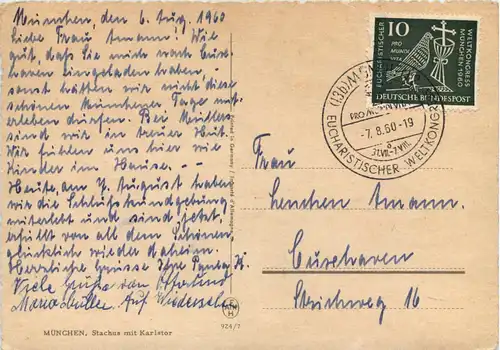 München, den 6. Aug. 1960
Liebe Frau Amann! Wie
gut, daß Sie mich nach Cux-
haven eingeladen haben,
sonst hätten wir nicht diese
schönen Münchener Tage mit-
erleben dürfen. Bei Müllers
sind wir in treuer Hut.
Wir fühlen uns hier wie
Kinder im Hause. —
Heute, den 7. August haben
wir die Schlußkundgebung
miterlebt und sind jetzt,
erfüllt von all dem Schönen,
glücklich wieder daheim.
Herzliche Grüsse Ihre
Viele Grüße von
Maria Müller. Auf Wiedersehen
MÜNCHEN, Stachus mit Karlstor
924/7
10
PRO MUNDI VITA
EUCHARISTISCHER WELTKONGRESS MÜNCHEN 1960
DEUTSCHE BUNDESPOST
(13b) MÜNCHEN
PRO MUNDI VITA
-7.8.60-19
31.VII.-7.VIII.
EUCHARISTISCHER WELTKONGRESS
Frau
Lenchen Amann.
Cuxhaven
Strichweg 16